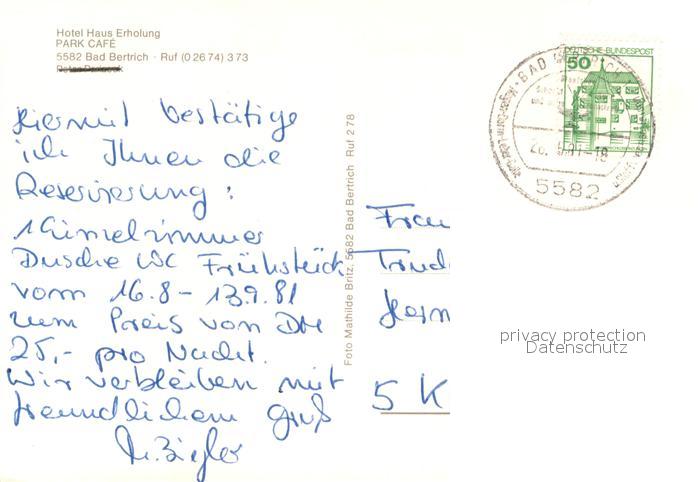 Hotel Haus Erholung
PARK CAFÉ
5582 Bad Bertrich · Ruf (0 26 74) 3 73
Hiermit bestätige
ich Ihnen die
Reservierung:
1 Einzelzimmer
Dusche WC Frühstück
vom 16.8 – 13.9.81
zum Preis von DM
25,- pro Nacht.
Wir verbleiben mit
freundlichem Gruß
M. Ziegler
Foto Mathilde Britz, 5582 Bad Bertrich Ruf 2 78
DEUTSCHE BUNDESPOST
50
BAD BERTRICH
5582
Frau
Trud
Herm
5 K
privacy protection
Datenschutz